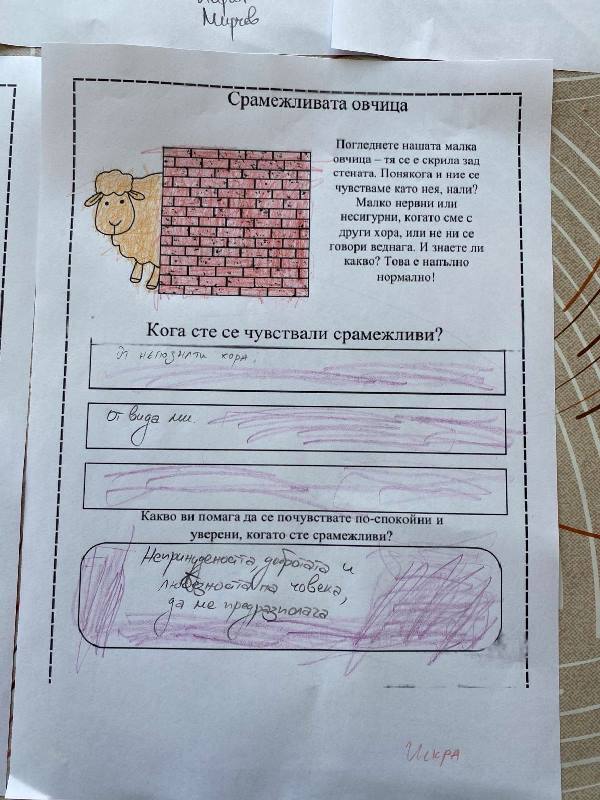 Мирчев
Срамежливата овчица
Погледнете нашата малка
овчица – тя се е скрила зад
стената. Понякога и ние се
чувстваме като нея, нали?
Малко нервни или
несигурни, когато сме с
други хора, или не ни се
говори веднага. И знаете ли
какво? Това е напълно
нормално!
Кога сте се чувствали срамежливи?
От непознати хора.
От вида ми.
Какво ви помага да се почувствате по-спокойни и
уверени, когато сте срамежливи?
Непринудеността, добротата и
любезността на човека,
да ме предразполага
Искра